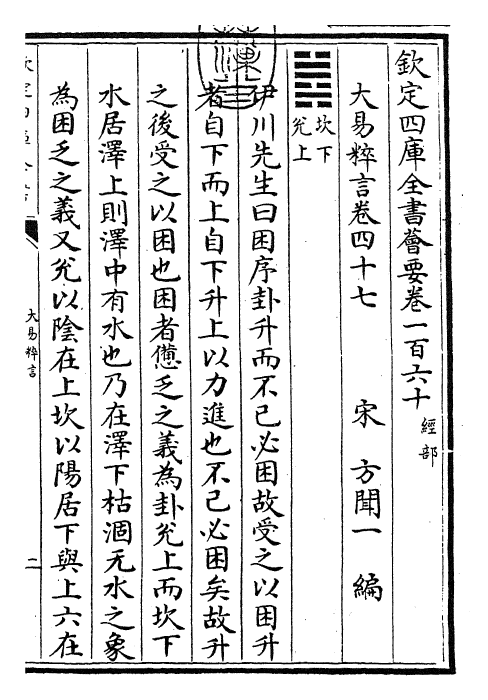 欽定四庫全書薈要卷一百六十 經部
大易粹言卷四十七 宋 方聞一 編
坎下
兌上
伊川先生曰困序卦升而不已必困故受之以困升
者自下而上自下升上以力進也不已必困矣故升
之後受之以困也困者憊乏之義為卦兌上而坎下
水居澤上則澤中有水也乃在澤下枯涸无水之象
為困乏之義又兌以陰在上坎以陽居下與上六在
大易粹言